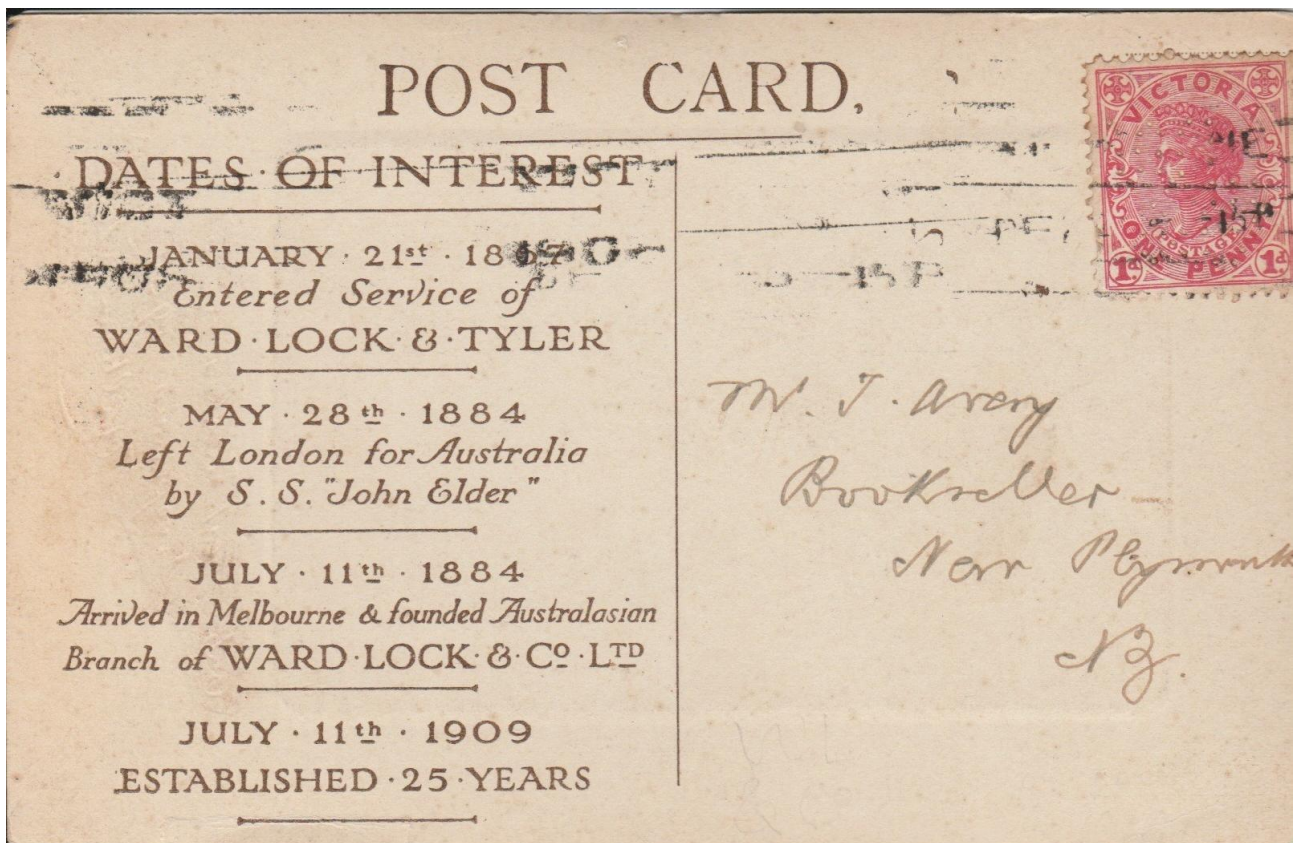 POST CARD.
DATES · OF · INTEREST
JANUARY · 21st · 1867
Entered Service of
WARD · LOCK · & · TYLER
MAY · 28th · 1884
Left London for Australia
by S. S. "John Elder"
JULY · 11th · 1884
Arrived in Melbourne & founded Australasian
Branch of WARD · LOCK · & · Co · LTD
JULY · 11th · 1909
ESTABLISHED · 25 · YEARS
VICTORIA
POSTAGE
ONE PENNY
1d 1d
15 P
15 P
Mr. T. Avery
Bookseller
New Plymouth
NZ.